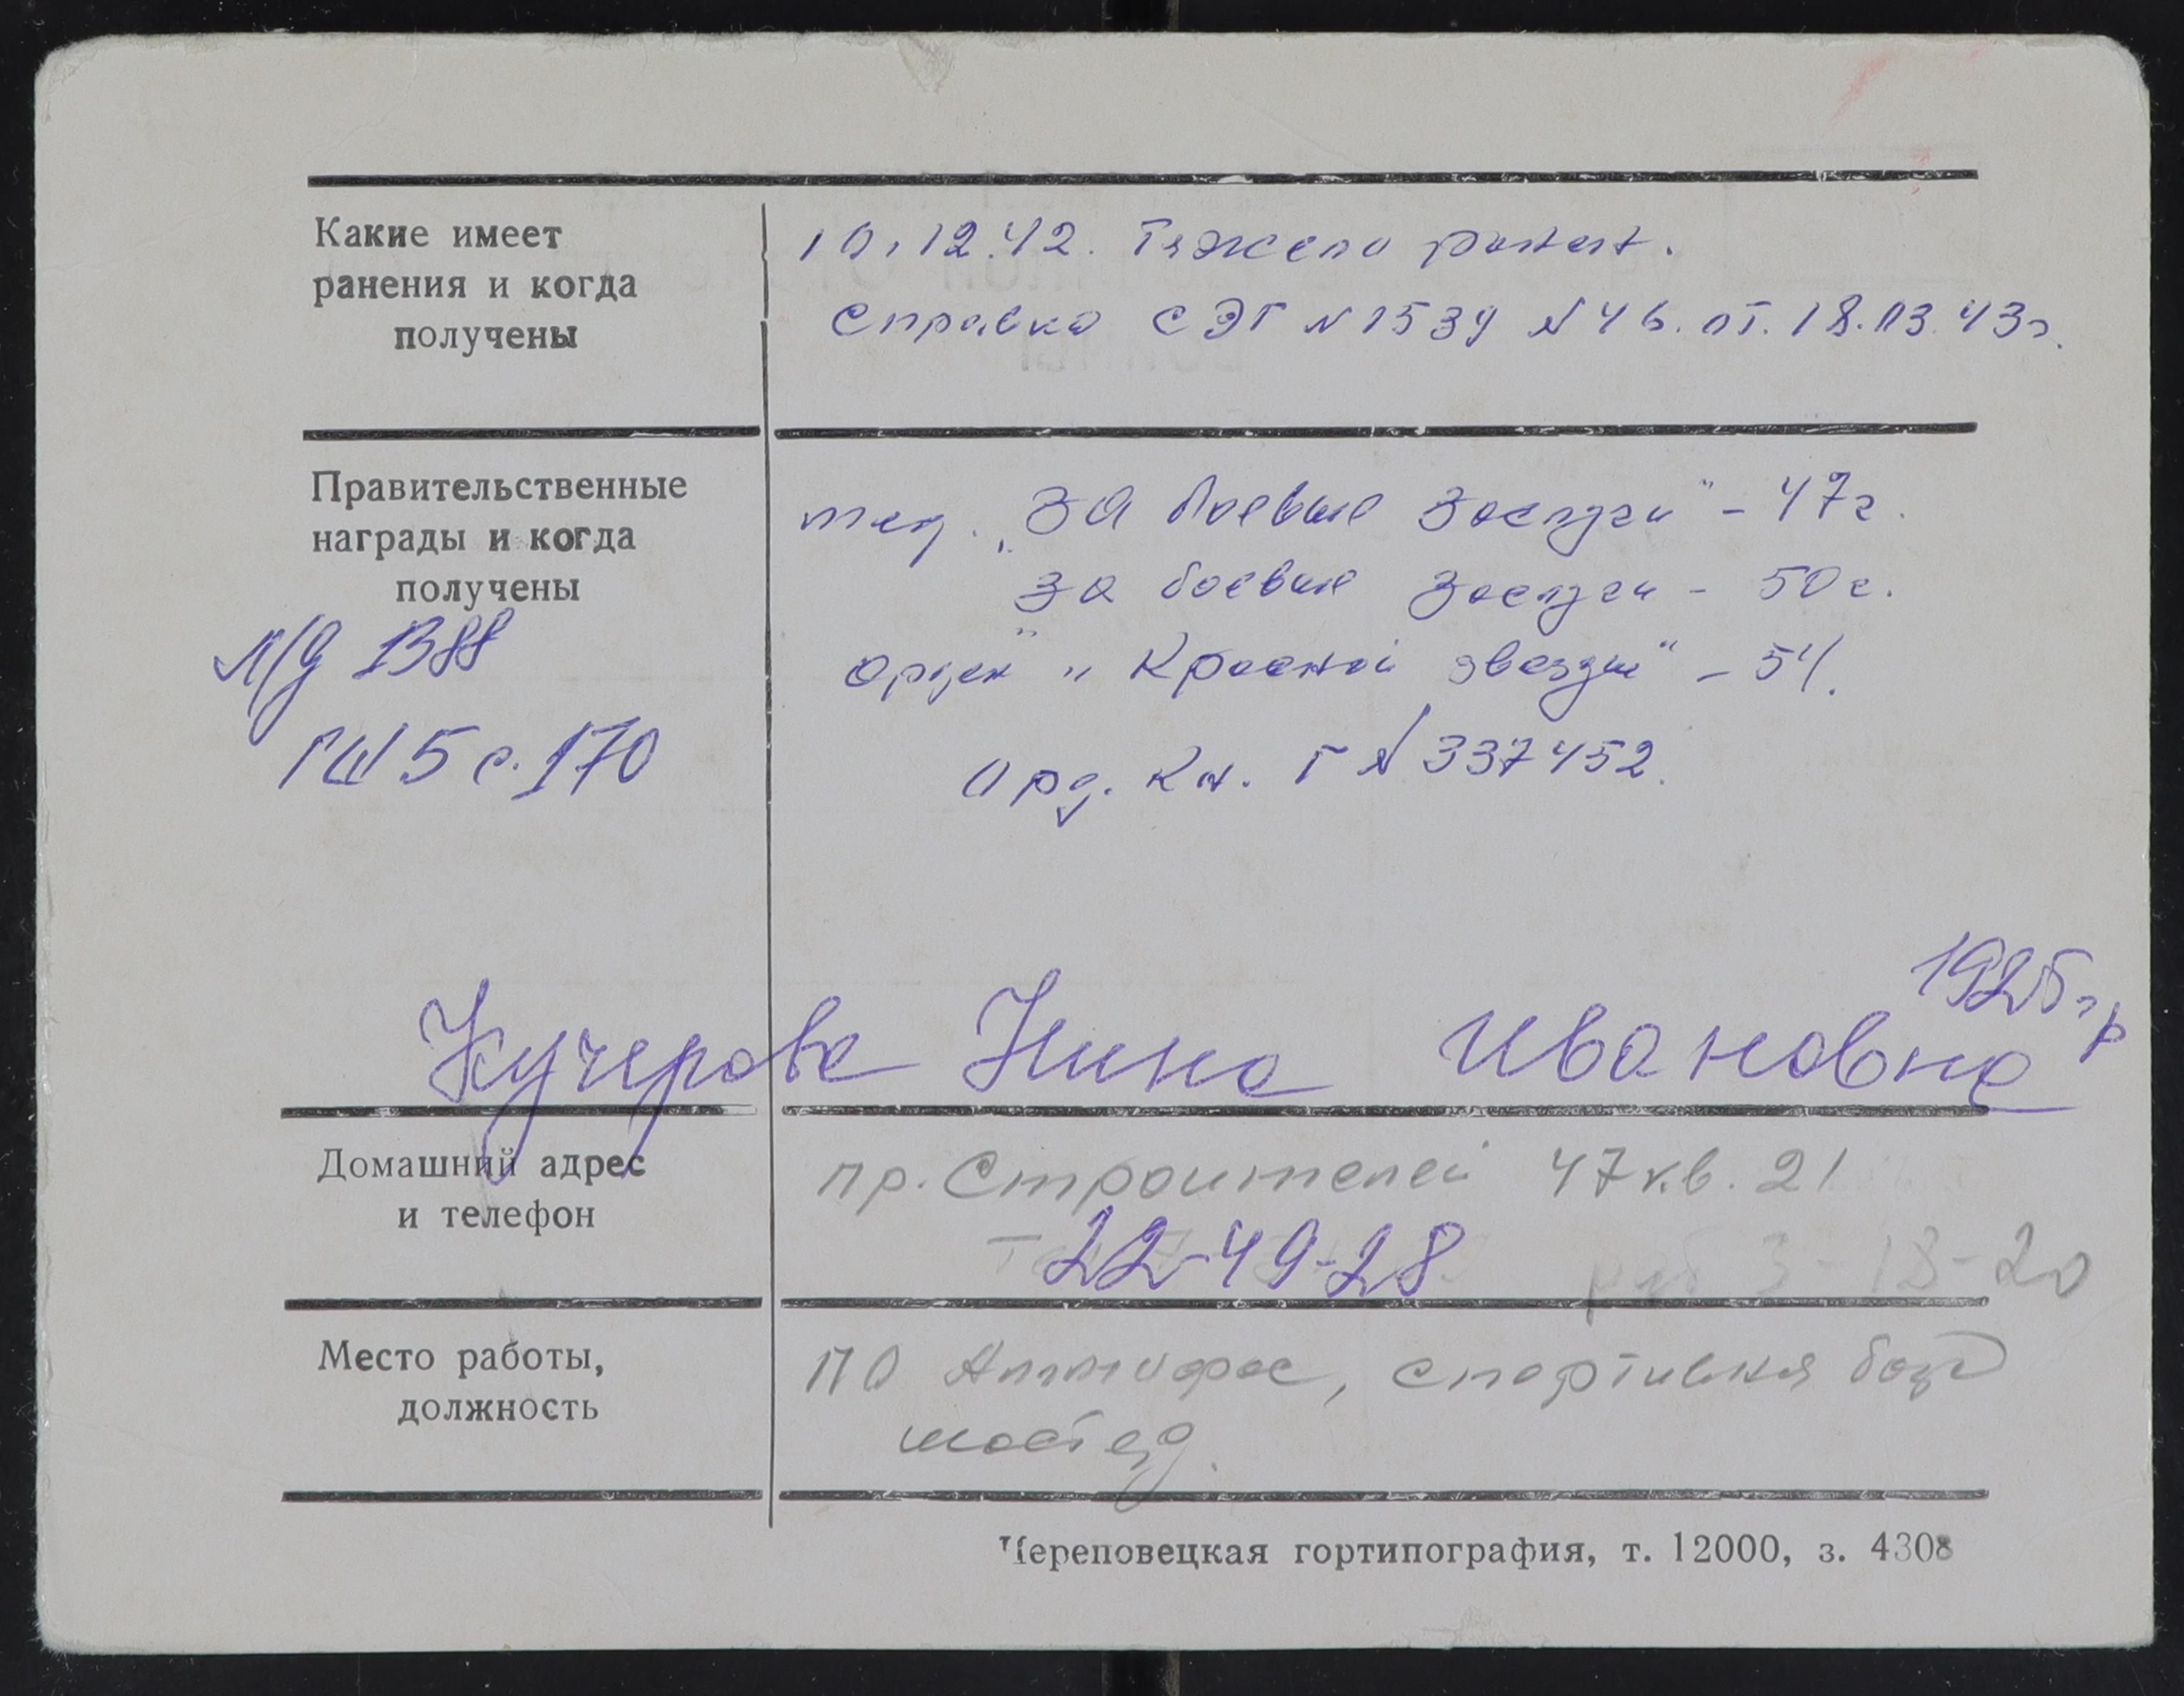 Какие имеет
ранения и когда
получены
10.12.42. Тяжело ранен.
Справка СЭГ № 1539 № 46. от. 18.03.43г.
Правительственные
награды и когда
получены
мед. „За боевые заслуги" - 47г.
За боевые заслуги - 50г.
орден „Красной звезды" - 54.
Орд. Кн. Г № 337452.
Л/д 1388
ГШ 5 с. 170
1925 г р
Кучерова Нина Ивановна
Домашний адрес
и телефон
пр. Строителей 47 кв. 21
22-49-28
раб 3-18-20
Место работы,
должность
ПО Аммофос, спортивная база
Череповецкая гортипография, т. 12000, з. 4308